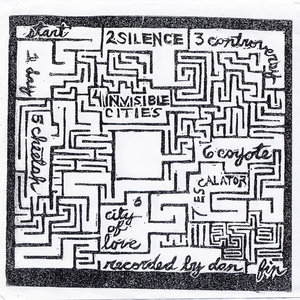 start
1 day
2 SILENCE
3 controversy
4 INVISIBLE
CITIES
5 cheetah
6 coyote
7 ES
CALATOR
8
city
of
love
recorded by dan
fin